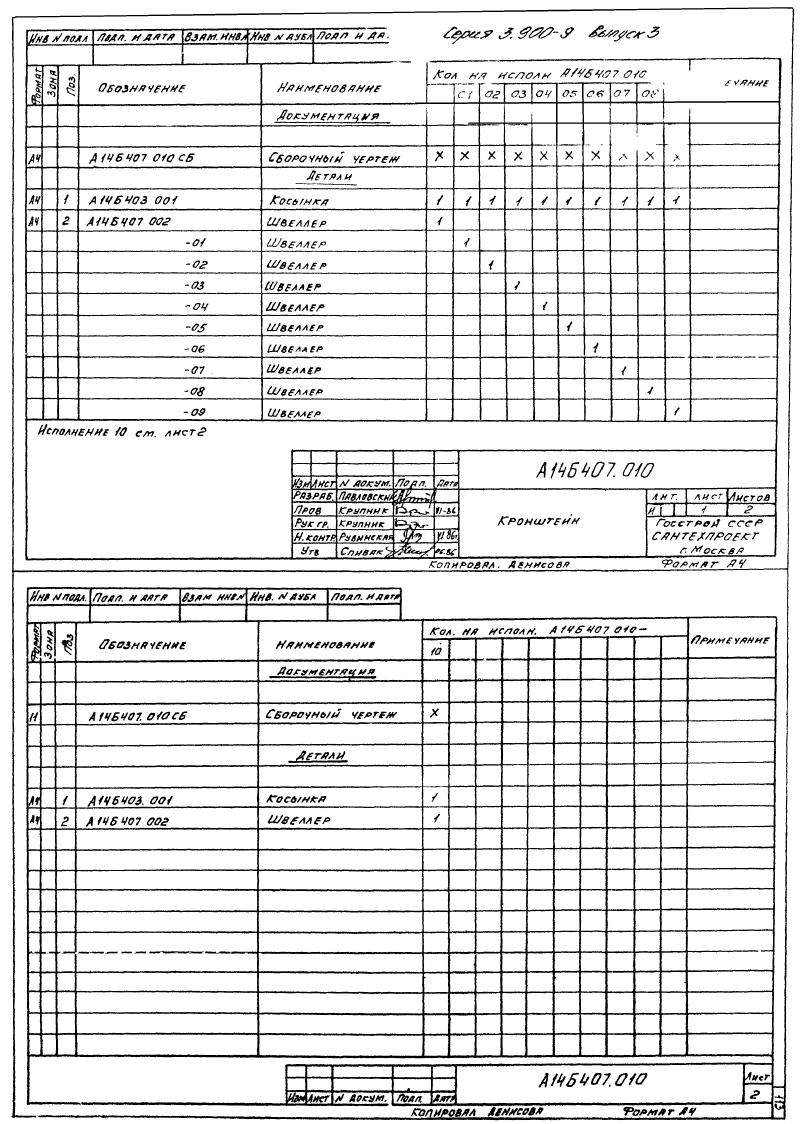 Серия 3.900-9 Выпуск 3
Инв N подл Подп. и дата Взам. инв.N Инв N дубл Подп и да.
Формат Зона Поз. Обозначение Наименование Кол на исполн А14Б407.010 ечание
01 02 03 04 05 06 07 08
Документация
А4 А14Б407 010 СБ Сборочный чертеж X X X X X X X X X X
Детали
А4 1 А14Б403 001 Косынка 1 1 1 1 1 1 1 1 1 1
А4 2 А14Б407 002 Швеллер 1
-01 Швеллер 1
-02 Швеллер 1
-03 Швеллер 1
-04 Швеллер 1
-05 Швеллер 1
-06 Швеллер 1
-07 Швеллер 1
-08 Швеллер 1
-09 Швеллер 1
Исполнение 10 см. лист 2
А14Б407.010
Изм Лист N докум. Подп. Дата
Разраб. Павловский
Пров Крупник VI-86
Рук гр. Крупник
Н.контр Рубинская VI.86г
Утв Спивак 06.86
Кронштейн
Лит. Лист Листов
И 1 2
Госстрой СССР
Сантехпроект
г. Москва
Копировал. Денисова Формат А4
Инв N подл. Подп. и дата Взам инв.N Инв. N дубл Подп. и дата
Формат Зона Поз Обозначение Наименование Кол. на исполн. А14Б407 010- Примечание
10
Документация
11 А14Б407.010 СБ Сборочный чертеж X
Детали
А4 1 А14Б403.001 Косынка 1
А4 2 А14Б407 002 Швеллер 1
А14Б407.010 Лист
2
Изм Лист N докум. Подп. Дата
Копировал Денисова Формат А4
113